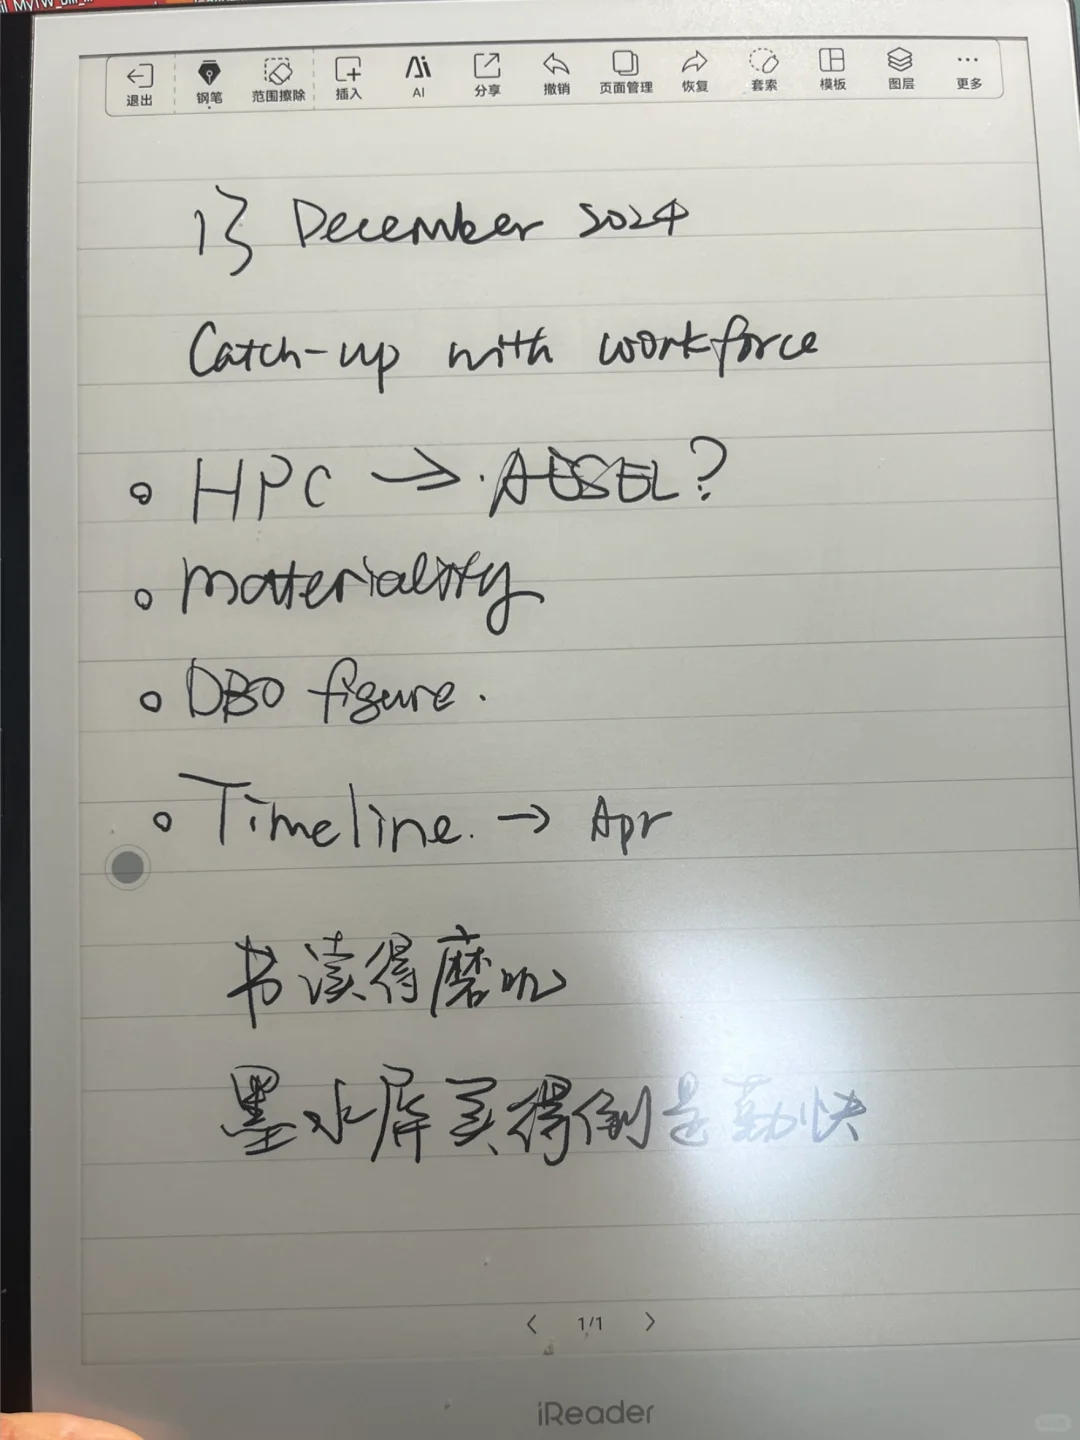 退出 钢笔 范围擦除 插入 AI 分享 撤销 页面管理 恢复 套索 模板 图层 更多
13 December 2024
Catch-up with workforce
HPC → ?
Materiality
DBO figure.
Timeline. → Apr
书读得磨叽
墨水屏买得倒是勤快
1/1
iReader